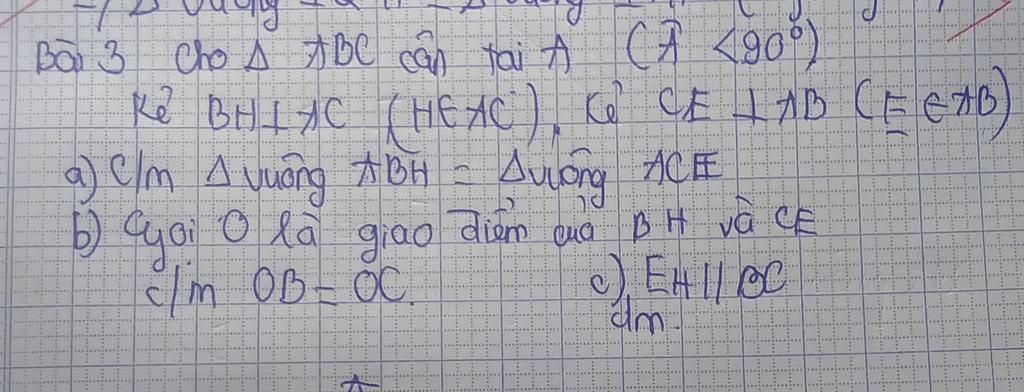 Bài 3 Cho Δ ABC cân tại A (Â < 90°)
Kẻ BH ⊥ AC (H ∈ AC), Kẻ CE ⊥ AB (E ∈ AB)
a) C/m Δ vuông ABH = Δ vuông ACE
b) Gọi O là giao điểm của BH và CE
c/m OB = OC. c) EH // BC